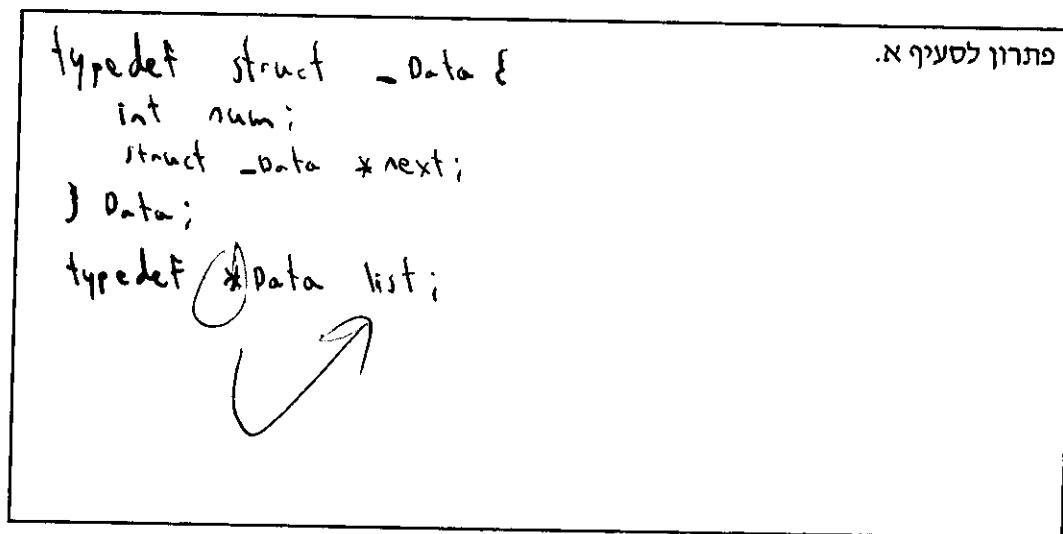 פתרון לסעיף א.
typedef struct _Data {
int num;
struct _Data *next;
} Data;
typedef *Data list;